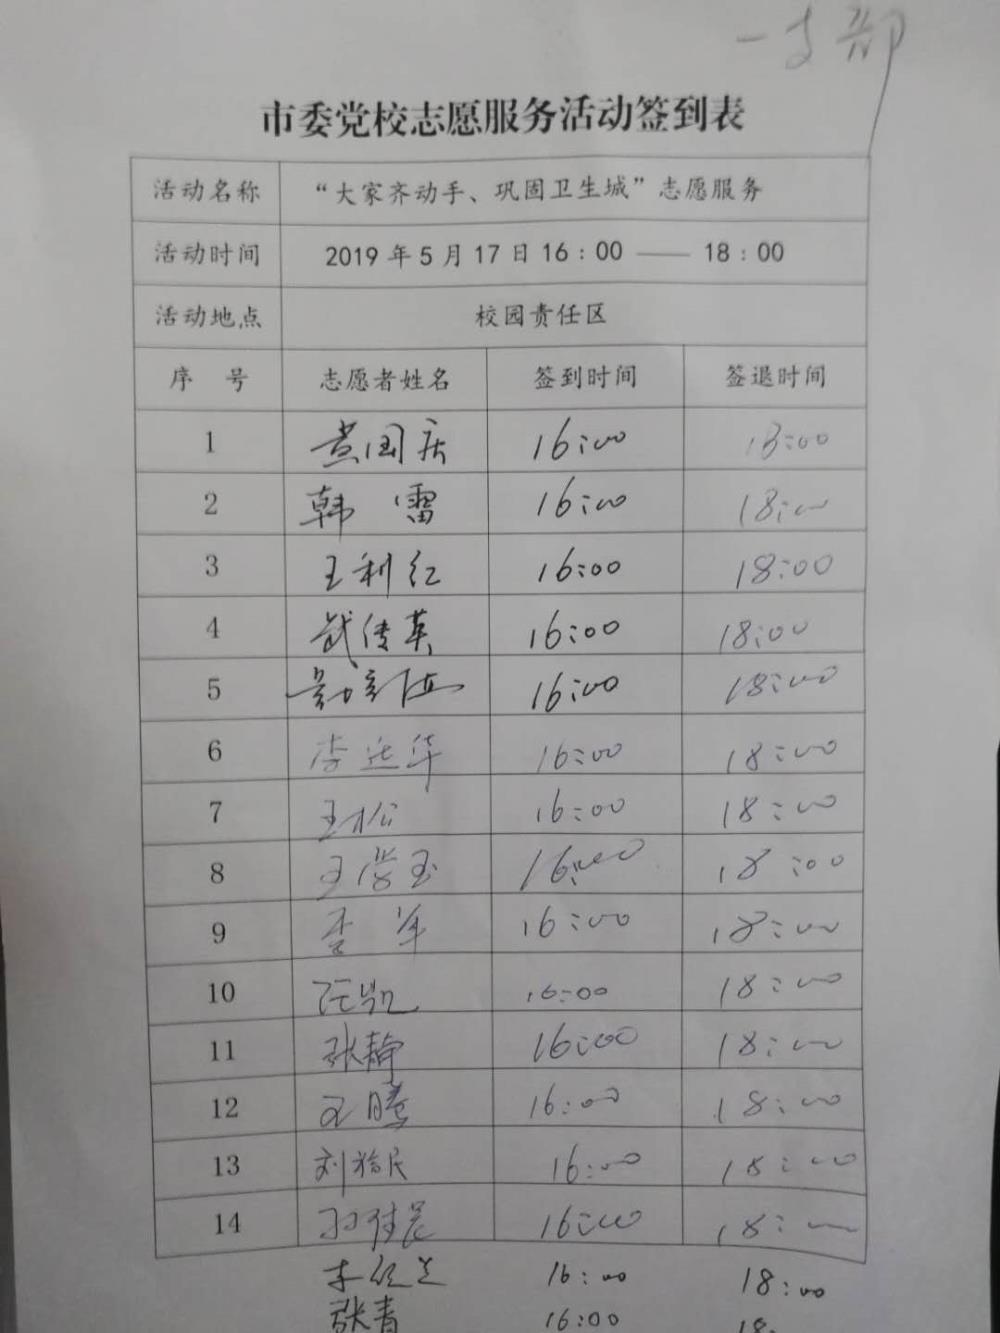 一支部
市委党校志愿服务活动签到表
活动名称 “大家齐动手、巩固卫生城”志愿服务
活动时间 2019年5月17日16:00——18:00
活动地点 校园责任区
序 号 志愿者姓名 签到时间 签退时间
1 黄国庆 16:00 18:00
2 韩雷 16:00 18:00
3 王利红 16:00 18:00
4 武传英 16:00 18:00
5 16:00 18:00
6 李延华 16:00 18:00
7 王松 16:00 18:00
8 王学玉 16:00 18:00
9 李军 16:00 18:00
10 汪凯 16:00 18:00
11 张静 16:00 18:00
12 王腾 16:00 18:00
13 16:00 18:00
14 16:00 18:00
16:00 18:00
张青 16:00 18: